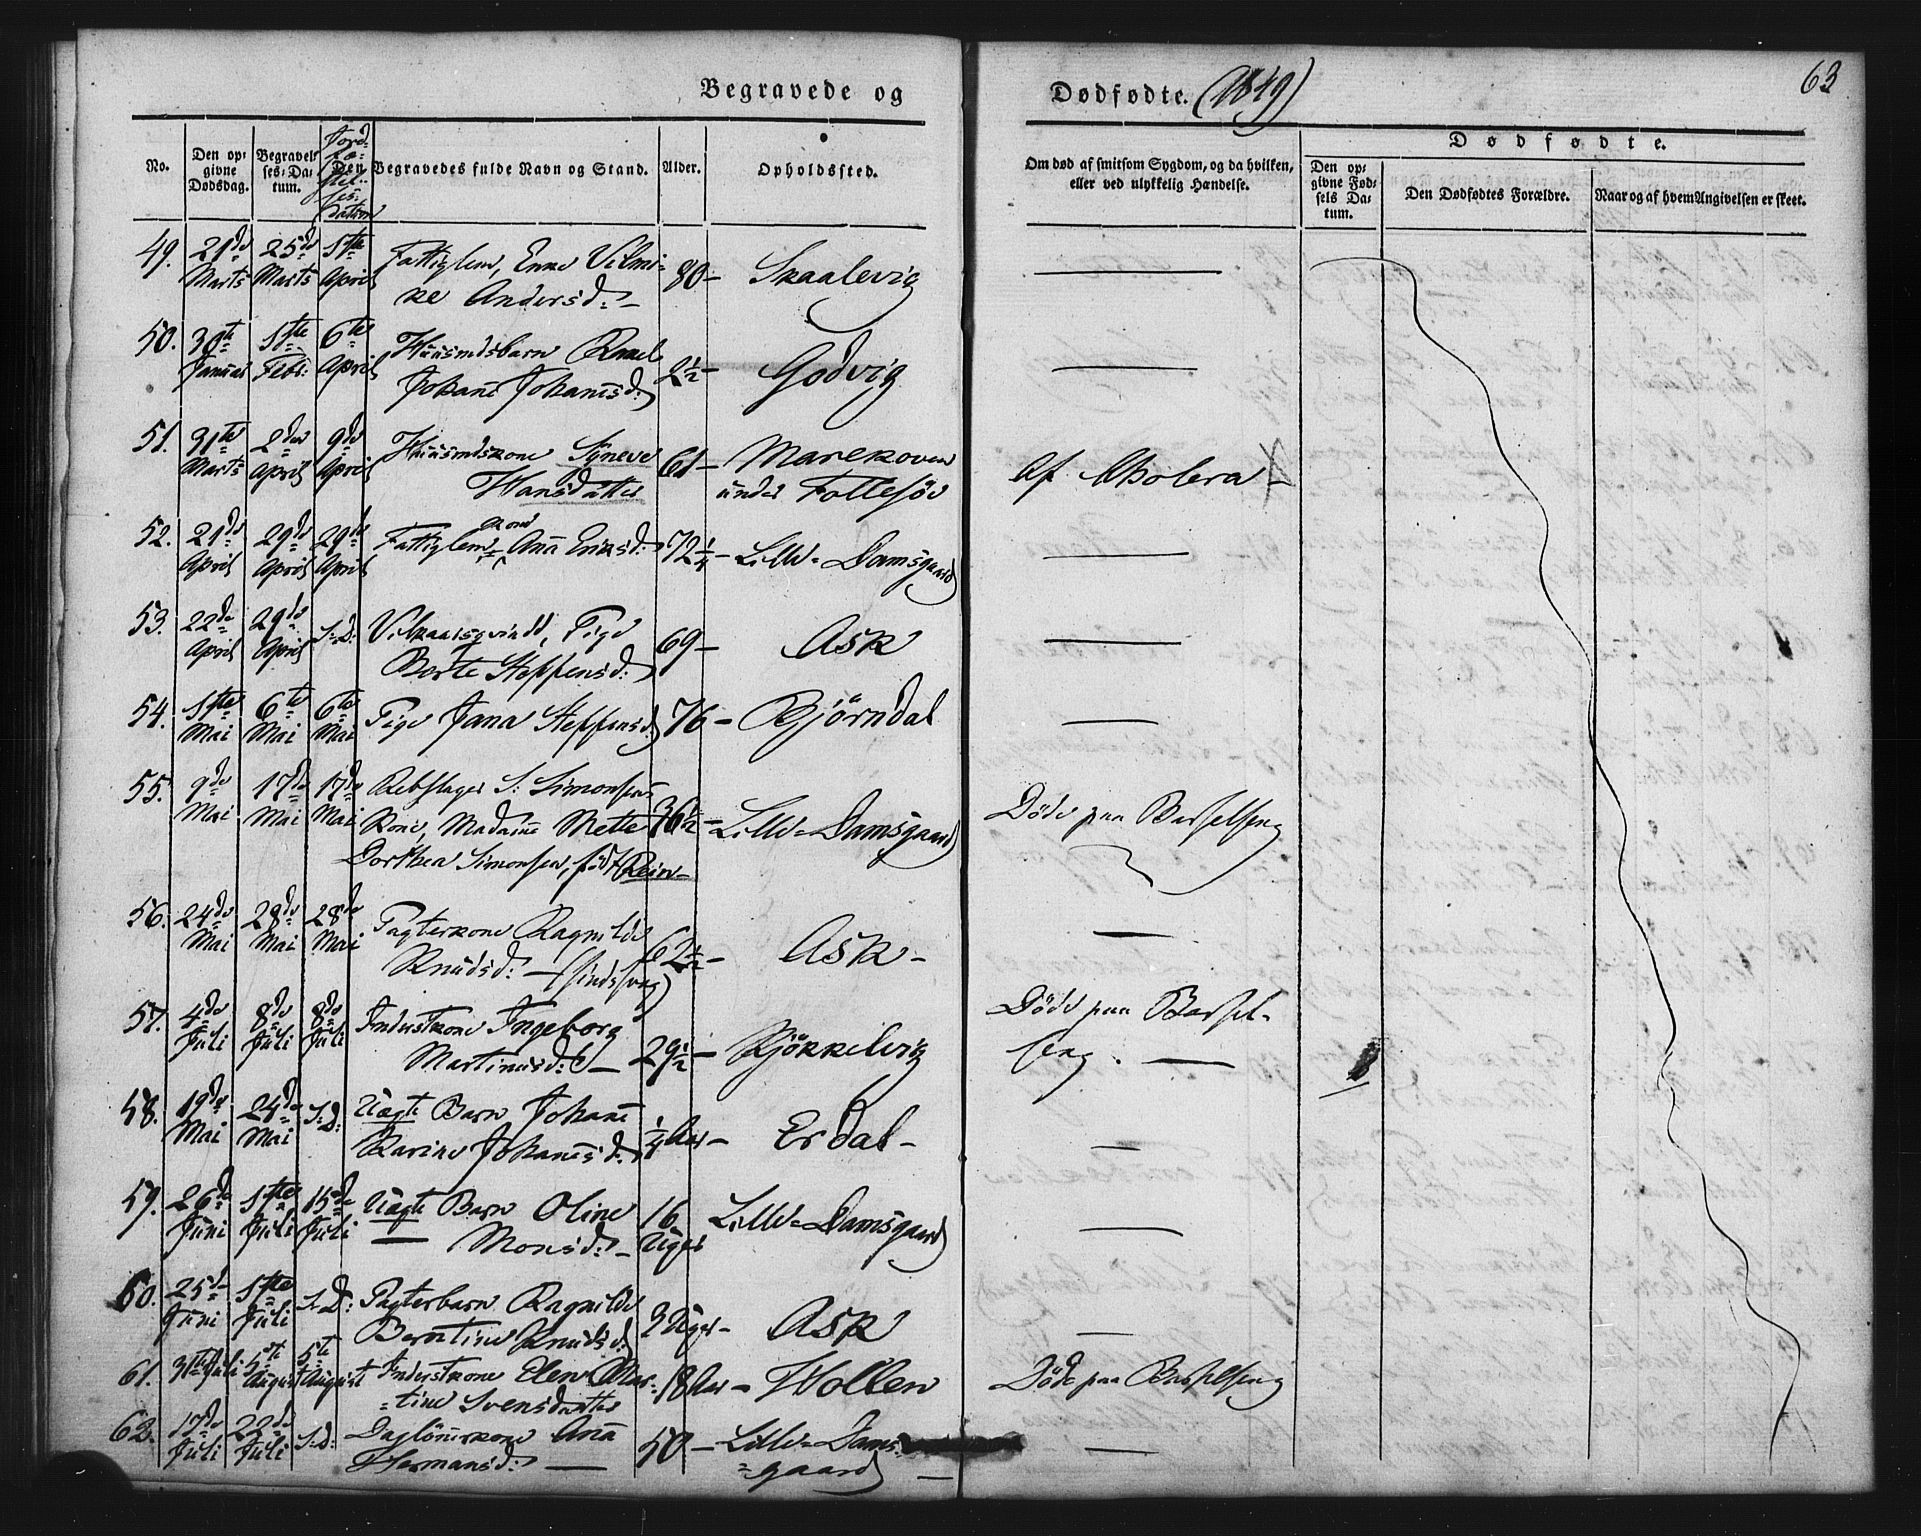 Begravede og Dødfødte. (1849)
63
No.
Den opgivne Dødsdag.
Begravelses-Datum.
Jordfæstelsesdatum
Begravedes fulde Navn og Stand.
Alder.
Opholdssted.
Om død af smitsom Sygdom, og da hvilken, eller ved ulykkelig Hændelse.
Dødfødte.
Den opgivne Fødsels Datum.
Den Dødfødtes Forældre.
Naar og af hvem Angivelsen er skeet.
49. 21de Marts 25de Marts 1ste April Fattiglem, Enke Vilmi- 80 – Skaalevig —
ke Andersd: –
50. 30te Januar 1ste Febr: 6te April Huusmdsbarn Rakel 2½ – Godvig —
Johane Johannesd:
51. 31te Marts 2den April 9de April Huusmdskone Synneve 61 – Marekoven Af Cholera –
Hansdatter under Follesøe
52. 21de April 29de April 29de April Fattiglem kone Ana Eriksd: 72¼ – Lille-Damsgaard —
53. 22de April 29de April S: D: Vilkaarsqvinde, Pige 69 – Ask —
Berte Steffensd:
54. 1ste Mai 6te Mai 6te Mai Pige Jana Steffensd: 76 – Bjørndal —
55. 9de Mai 17de Mai 17de Mai Rebslager S: Simonsens 36½ – Lille-Damsgaard Døde paa Barselseng
Kone, Madame Mette
Dorthea Simonsen, født Rein –
56. 24de Mai 28de Mai 28de Mai Pagterkone Ragnilde 62½ – Ask – —
Knudsd: – (sindssvag)
57. 4de Juli 8de Juli 8de Juli Inderstkone Ingeborg 29½ – Kjøkkelvig Døde paa Barsel-
Martinusd: – seng. —
58. 19de Mai 24de Mai S: D: Uægte Barn Johane ¼ Aar – Erdal – —
Karine Johannesd:
59. 26de Juni 1ste Juli 15de Juli Uægte Barn Oline 16 Uger Lille-Damsgaard —
Monsd: –
60. 25de Juni 1ste Juli S: D: Pagterbarn Ragnilde 3 Uger – Ask —
Berntine Knudsd:
61. 31te Juli 5te August 5te August Inderstkone Elen Mar- 18 Aar – Hollen Døde paa Barselseng
tine Svensdatter
62. 17de Juli 22de Juli S: D: Daglönerkone Ana 50 – Lille-Dams- —
Hermansd: — gaard –